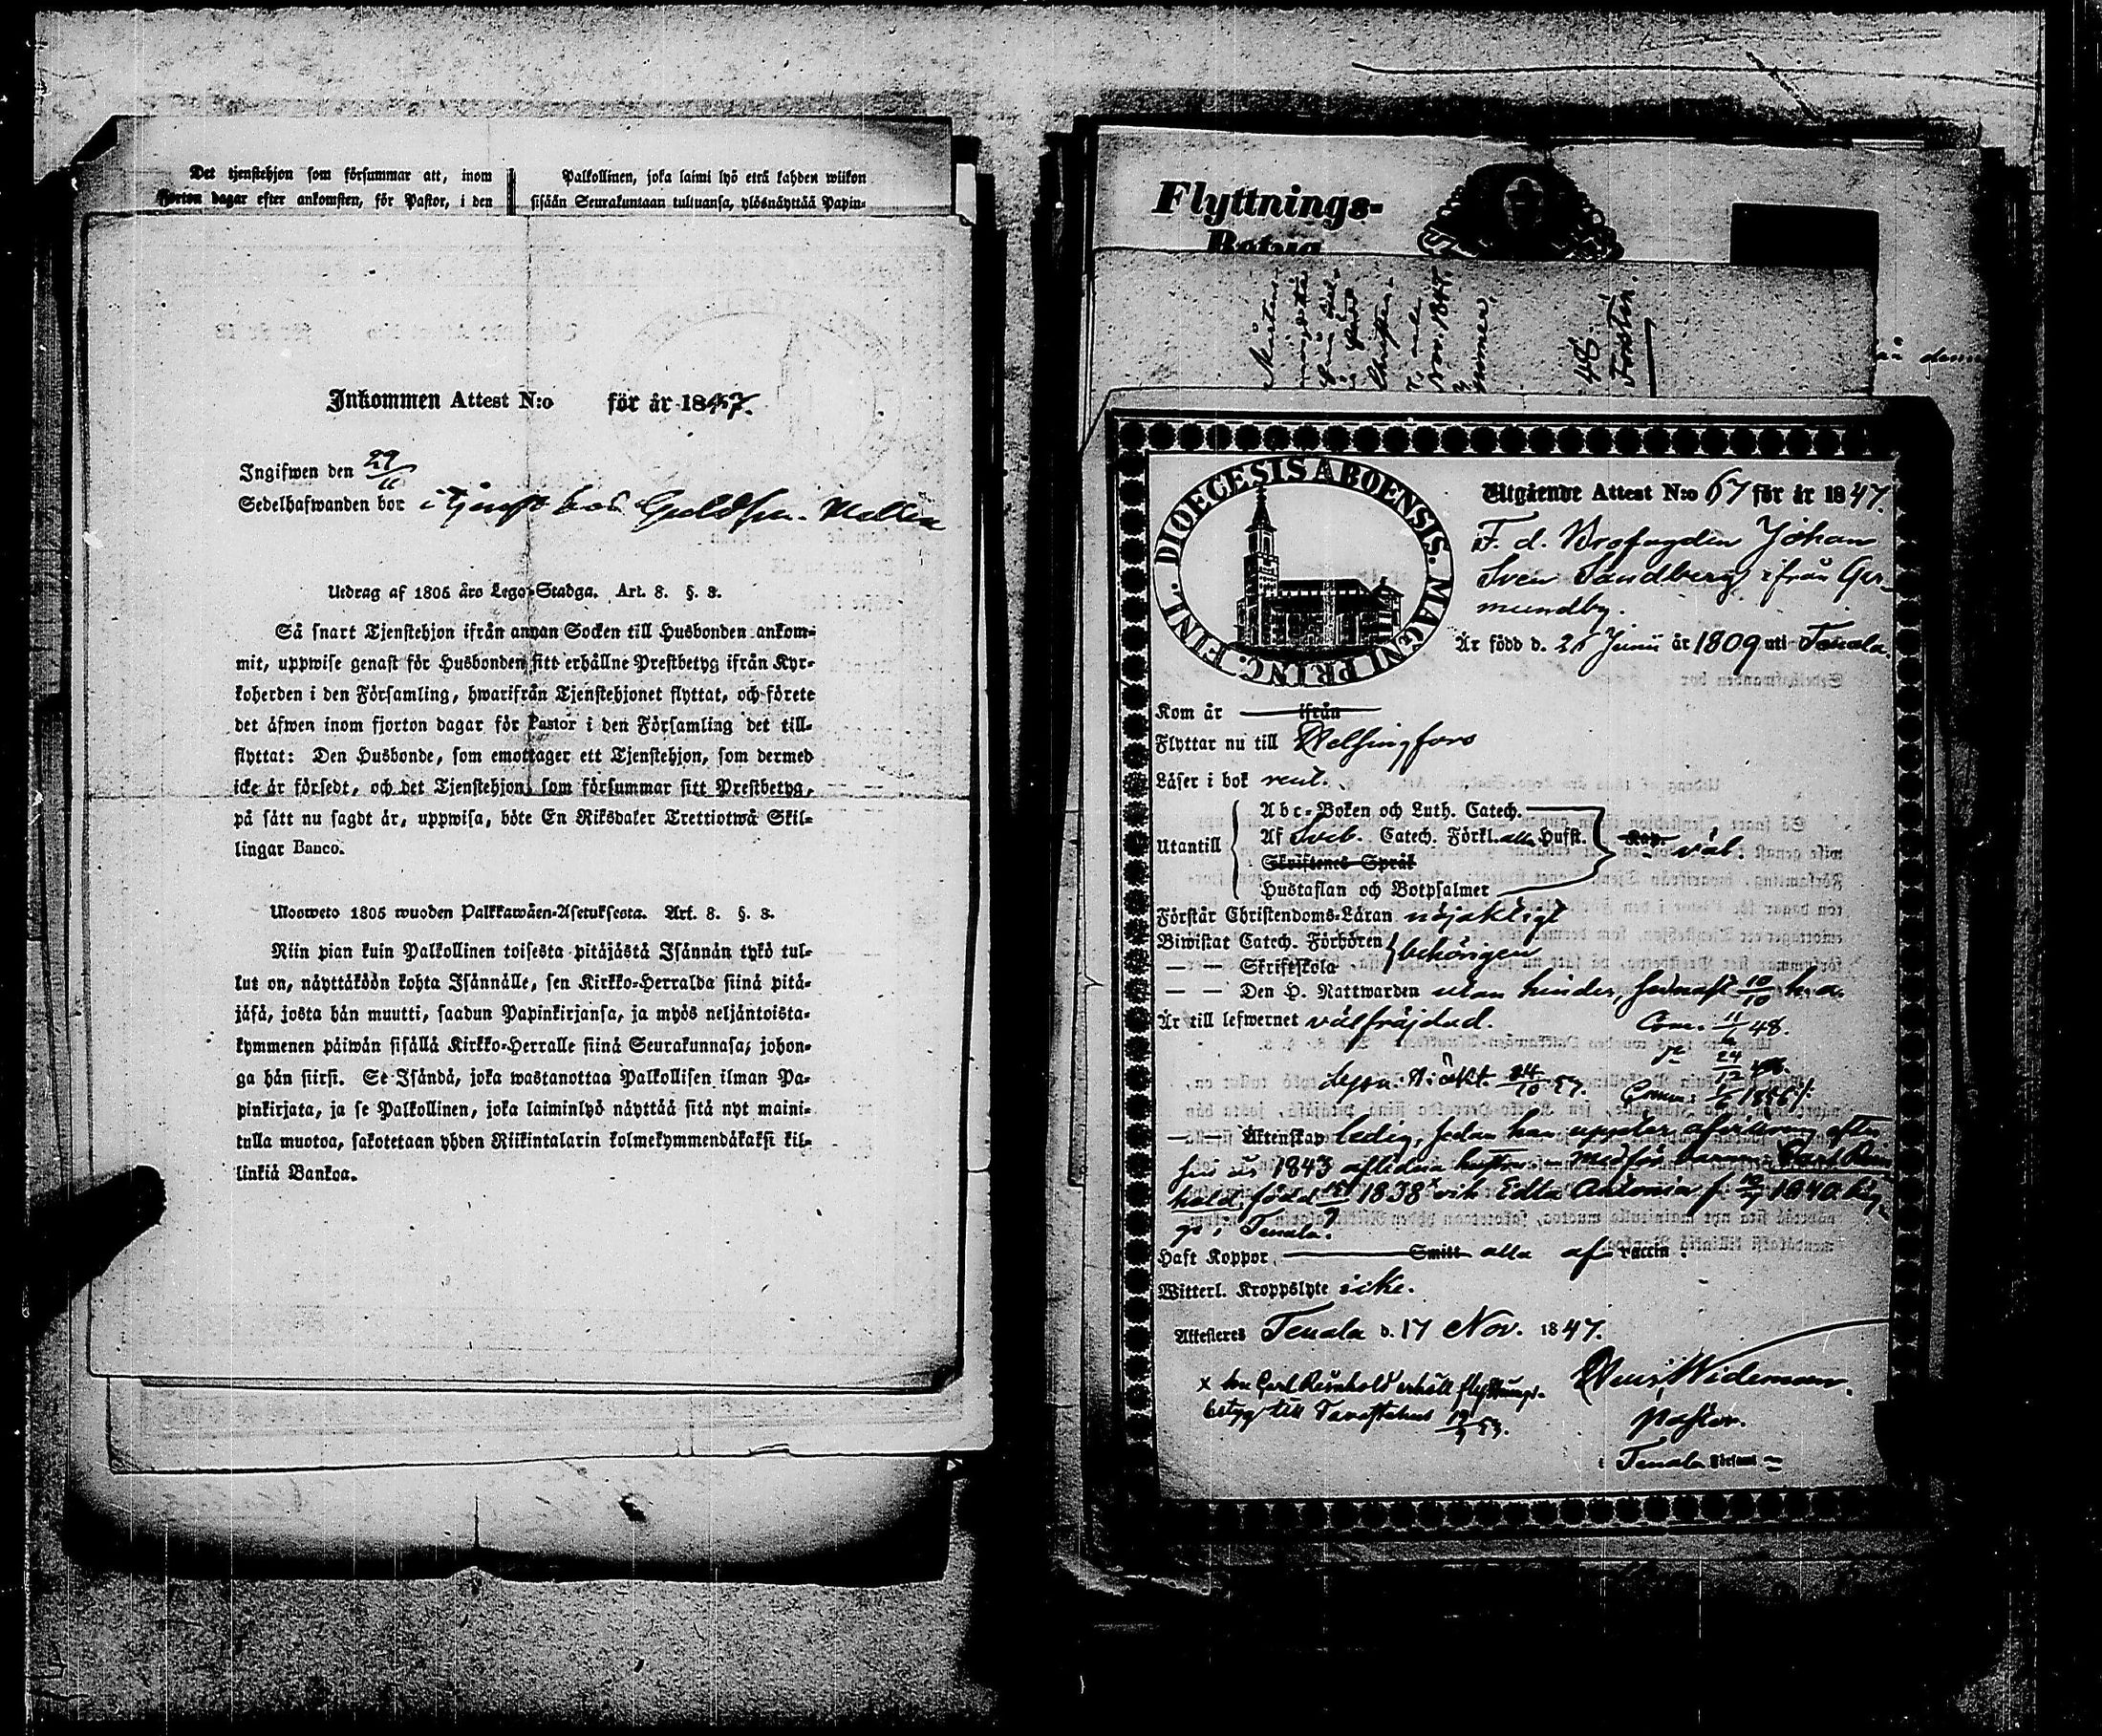 Det tjenstehjon som försummar att, inom
fjorton dagar efter ankomsten, för Pastor, i den
Palkollinen, joka laimi lyö että kahden wiikon
sisään Seurakuntaan tultuansa, ylösnäyttää Papin-
Inkommen Attest N:o för år 1847.
Ingifwen den 29/11
Sedelhafwanden bor i tjenst hos
Utdrag af 1805 års Lego-Stadga. Art. 8. §. 3.
Så snart Tjenstehjon ifrån annan Socken till Husbonden ankom-
mit, uppwise genast för Husbonden sitt erhållne Prestbetyg ifrån Kyr-
koherden i den Församling, hwarifrån Tjenstehjonet flyttat, och förete
det äfwen inom fjorton dagar för Pastor i den Församling det till-
flyttat: Den Husbonde, som emottager ett Tjenstehjon, som dermed
icke är försedt, och det Tjenstehjon, som försummar sitt Prestbetyg,
på sätt nu sagdt är, uppwisa, böte En Riksdaler Trettiotwå Skil-
lingar Banco.
Ulosweto 1805 wuoden Palkkawäen-Asetuksesta. Art. 8. §. 3.
Niin pian kuin Palkollinen toisesta pitäjästä Isännän tykö tul-
lut on, näyttäköön kohta Isännälle, sen Kirkko-Herralda siinä pitä-
jäsä, josta hän muutti, saadun Papinkirjansa, ja myös neljäntoista-
kymmenen päiwän sisällä Kirkko-Herralle siinä Seurakunnasa; johon-
ga hän siirsi. Se Isändä, joka wastanottaa Palkollisen ilman Pa-
pinkirjata, ja se Palkollinen, joka laiminlyö näyttää sitä nyt maini-
tulla muotoa, sakotetaan yhden Riikintalarin kolmekymmendäkaksi kil-
linkiä Bankoa.
Flyttnings-
Betyg
Nov. 1847.
48.
DIOECESIS ABOENSIS. MAGNI PRINC. FINL.
Utgående Attest N:o 67 för år 1847.
F. d. Brofogden Johan
Sven Sandberg ifrån Ger-
mundby.
Är född d. 21 Junii år 1809 uti Tenala.
Kom år ifrån
Flyttar nu till Helsingfors
Läser i bok rent.
Utantill
Abc-Boken och Luth. Catech.
Af Sveb. Catech. Förkl. alla Hufst.
Skriftenes Språk
Hustaflan och Botpsalmer
Kap. väl.
Förstår Christendoms-Läran nöjaktigt
Biwistat Catech. Förhören behörigen
— — Skriftskola
— — Den H. Nattwarden utan hinder, sednast 10/10 h. a.
Är till lefwernet välfräjdad.
Com. 48.
— — Äktenskap ledig, sedan han
1843 aflidna hustru. Medför barnen Carl Rein-
hold, född 1838 x och Edla Antonia f. 1840 bäg-
ge i Tenala.
Haft Koppor Smitt alla af vaccin.
Witterl. Kroppslyte icke.
Attesteras Tenala d. 17 Nov. 1847.
x Son Carl Reinhold erhöll flyttnings-
betyg till Tavastehus 53.
Wideman.
Pastor.
i Tenala Församl